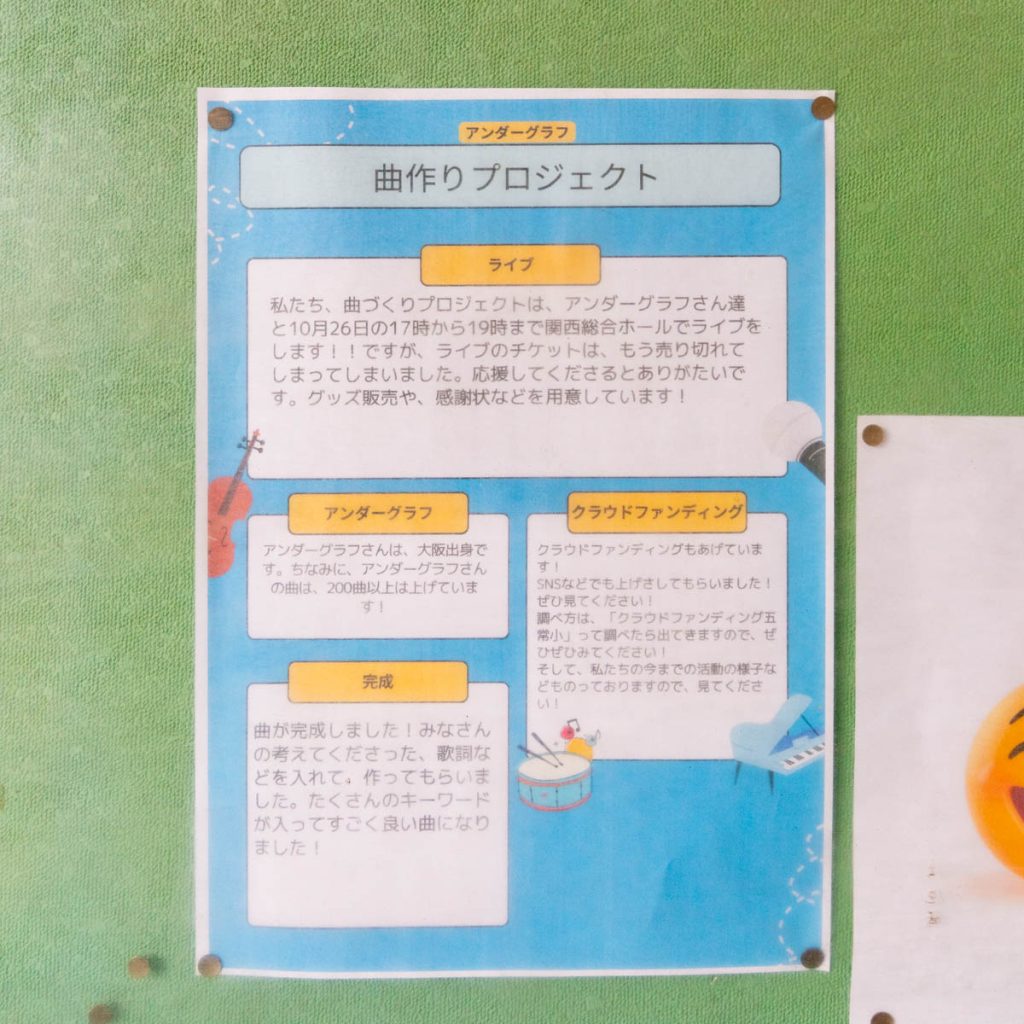 アンダーグラフ
曲作りプロジェクト
ライブ
私たち、曲づくりプロジェクトは、アンダーグラフさん達
と10月26日の17時から19時まで関西総合ホールでライブを
します！！ですが、ライブのチケットは、もう売り切れて
しまってしまいました。応援してくださるとありがたいで
す。グッズ販売や、感謝状などを用意しています！
アンダーグラフ
アンダーグラフさんは、大阪出身で
す。ちなみに、アンダーグラフさん
の曲は、200曲以上は上げていま
す！
クラウドファンディング
クラウドファンディングもあげていま
す！
SNSなどでも上げさしてもらいました！
ぜひ見てください！
調べ方は、「クラウドファンディング五
常小」って調べたら出てきますので、ぜ
ひぜひみてください！
そして、私たちの今までの活動の様子な
どものっておりますので、見てくださ
い！
完成
曲が完成しました！みなさん
の考えてくださった、歌詞な
どを入れて。作ってもらいま
した。たくさんのキーワード
が入ってすごく良い曲になり
ました！